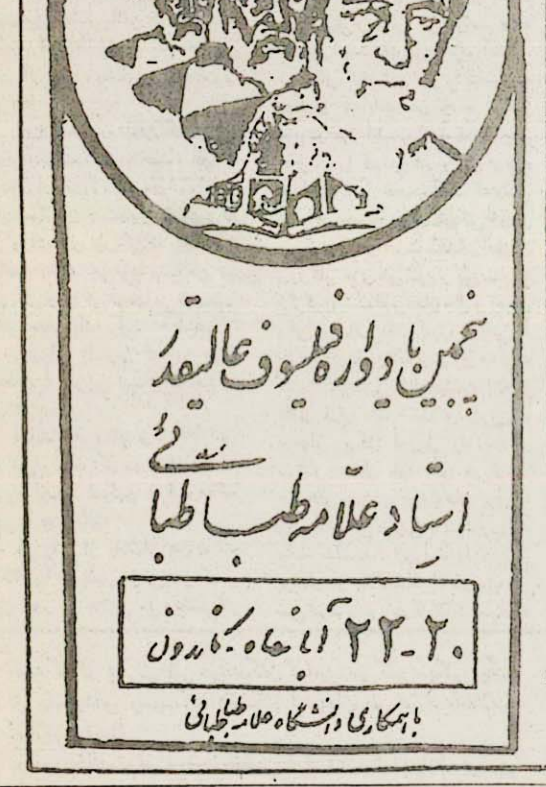 پنجمین یادواره فیلسوف عالیقدر
استاد علّامه طباطبائی
۲۰-۲۲ آبانماه-کازرون
با همکاری دانشگاه علامه طباطبائی